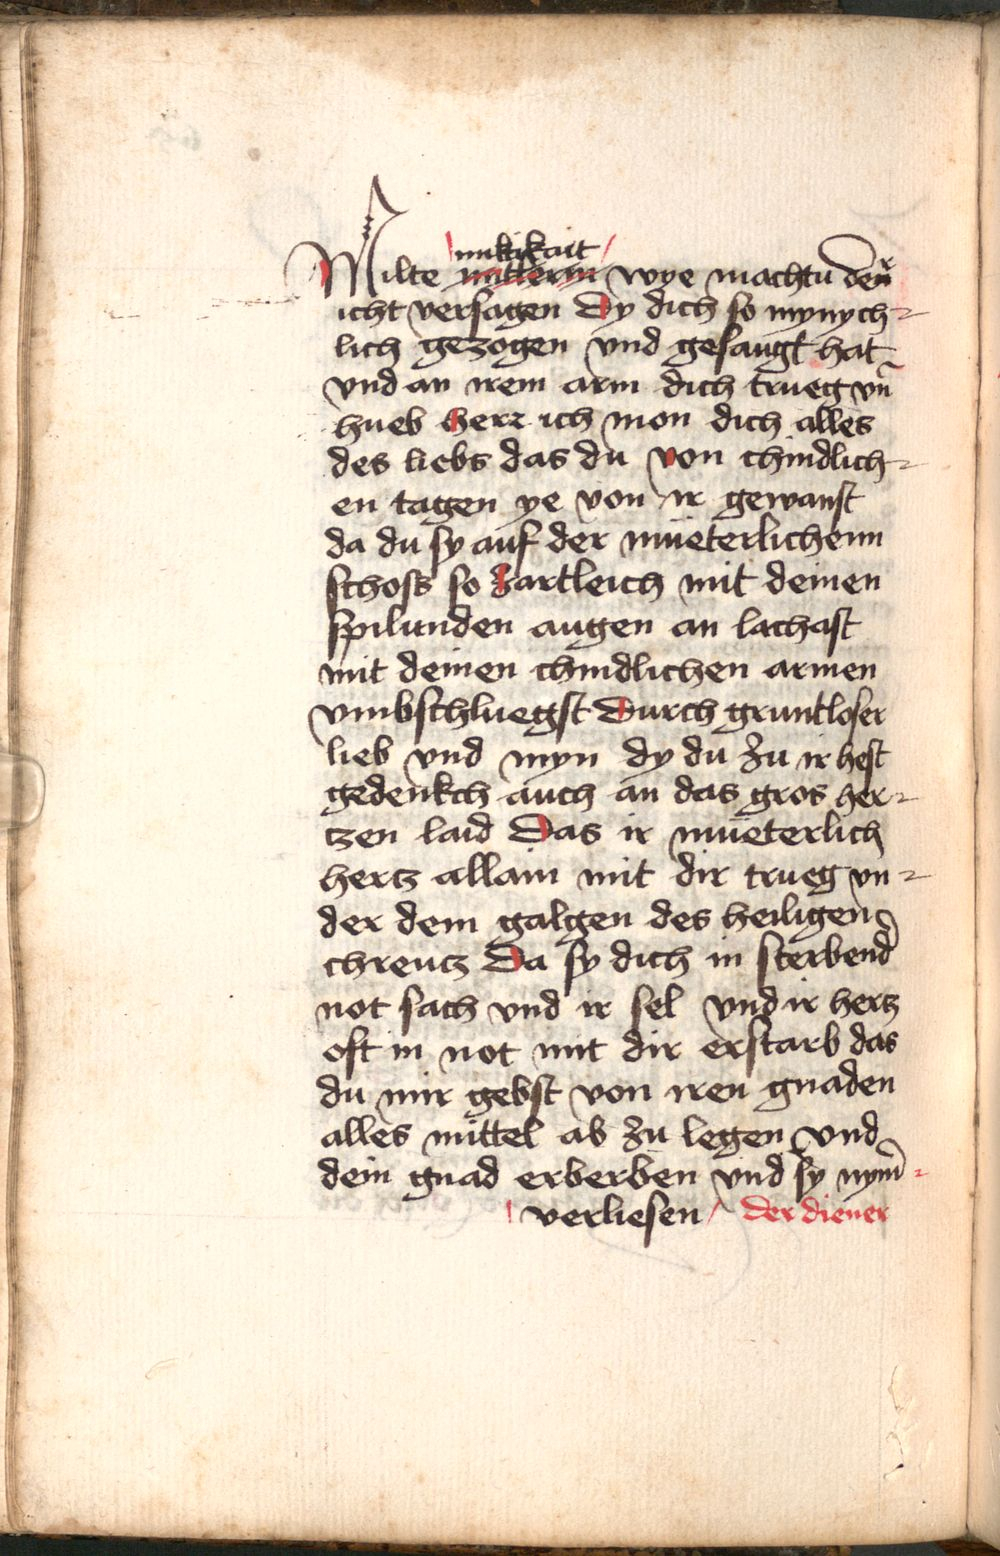 miltikait
Milte mitterin wye machtu der
icht versagen Dy dich so mynych-
lich gezogen vnd gesaugt hat
vnd an irem arm dich trueg vn̄
hueb herr ich mon dich alles
des liebs das du von chindlich-
en tagen ye von ir gewanst
da du sy auf der müeterlichenn
schoss so zartleich mit deinen
spilunden augen an lachast
mit deinen chindlichen armen
vmbschluegst Durch gruntloser
lieb vnd myn dy du zu ir hest
gedenkch auch an das gros her-
tzen laid Das ir mueterlich
hertz allain mit dir trueg vn-
der dem galgen des heiligen
chreutz Da sy dich in sterbend
not sach vnd ir sel vnd ir hertz
oft in not mit dir erstarb das
du mir gebst von iren gnaden
alles mittel ab zu legen vnd
dein gnad erberben vnd sy nym̄-
verliesen der diener